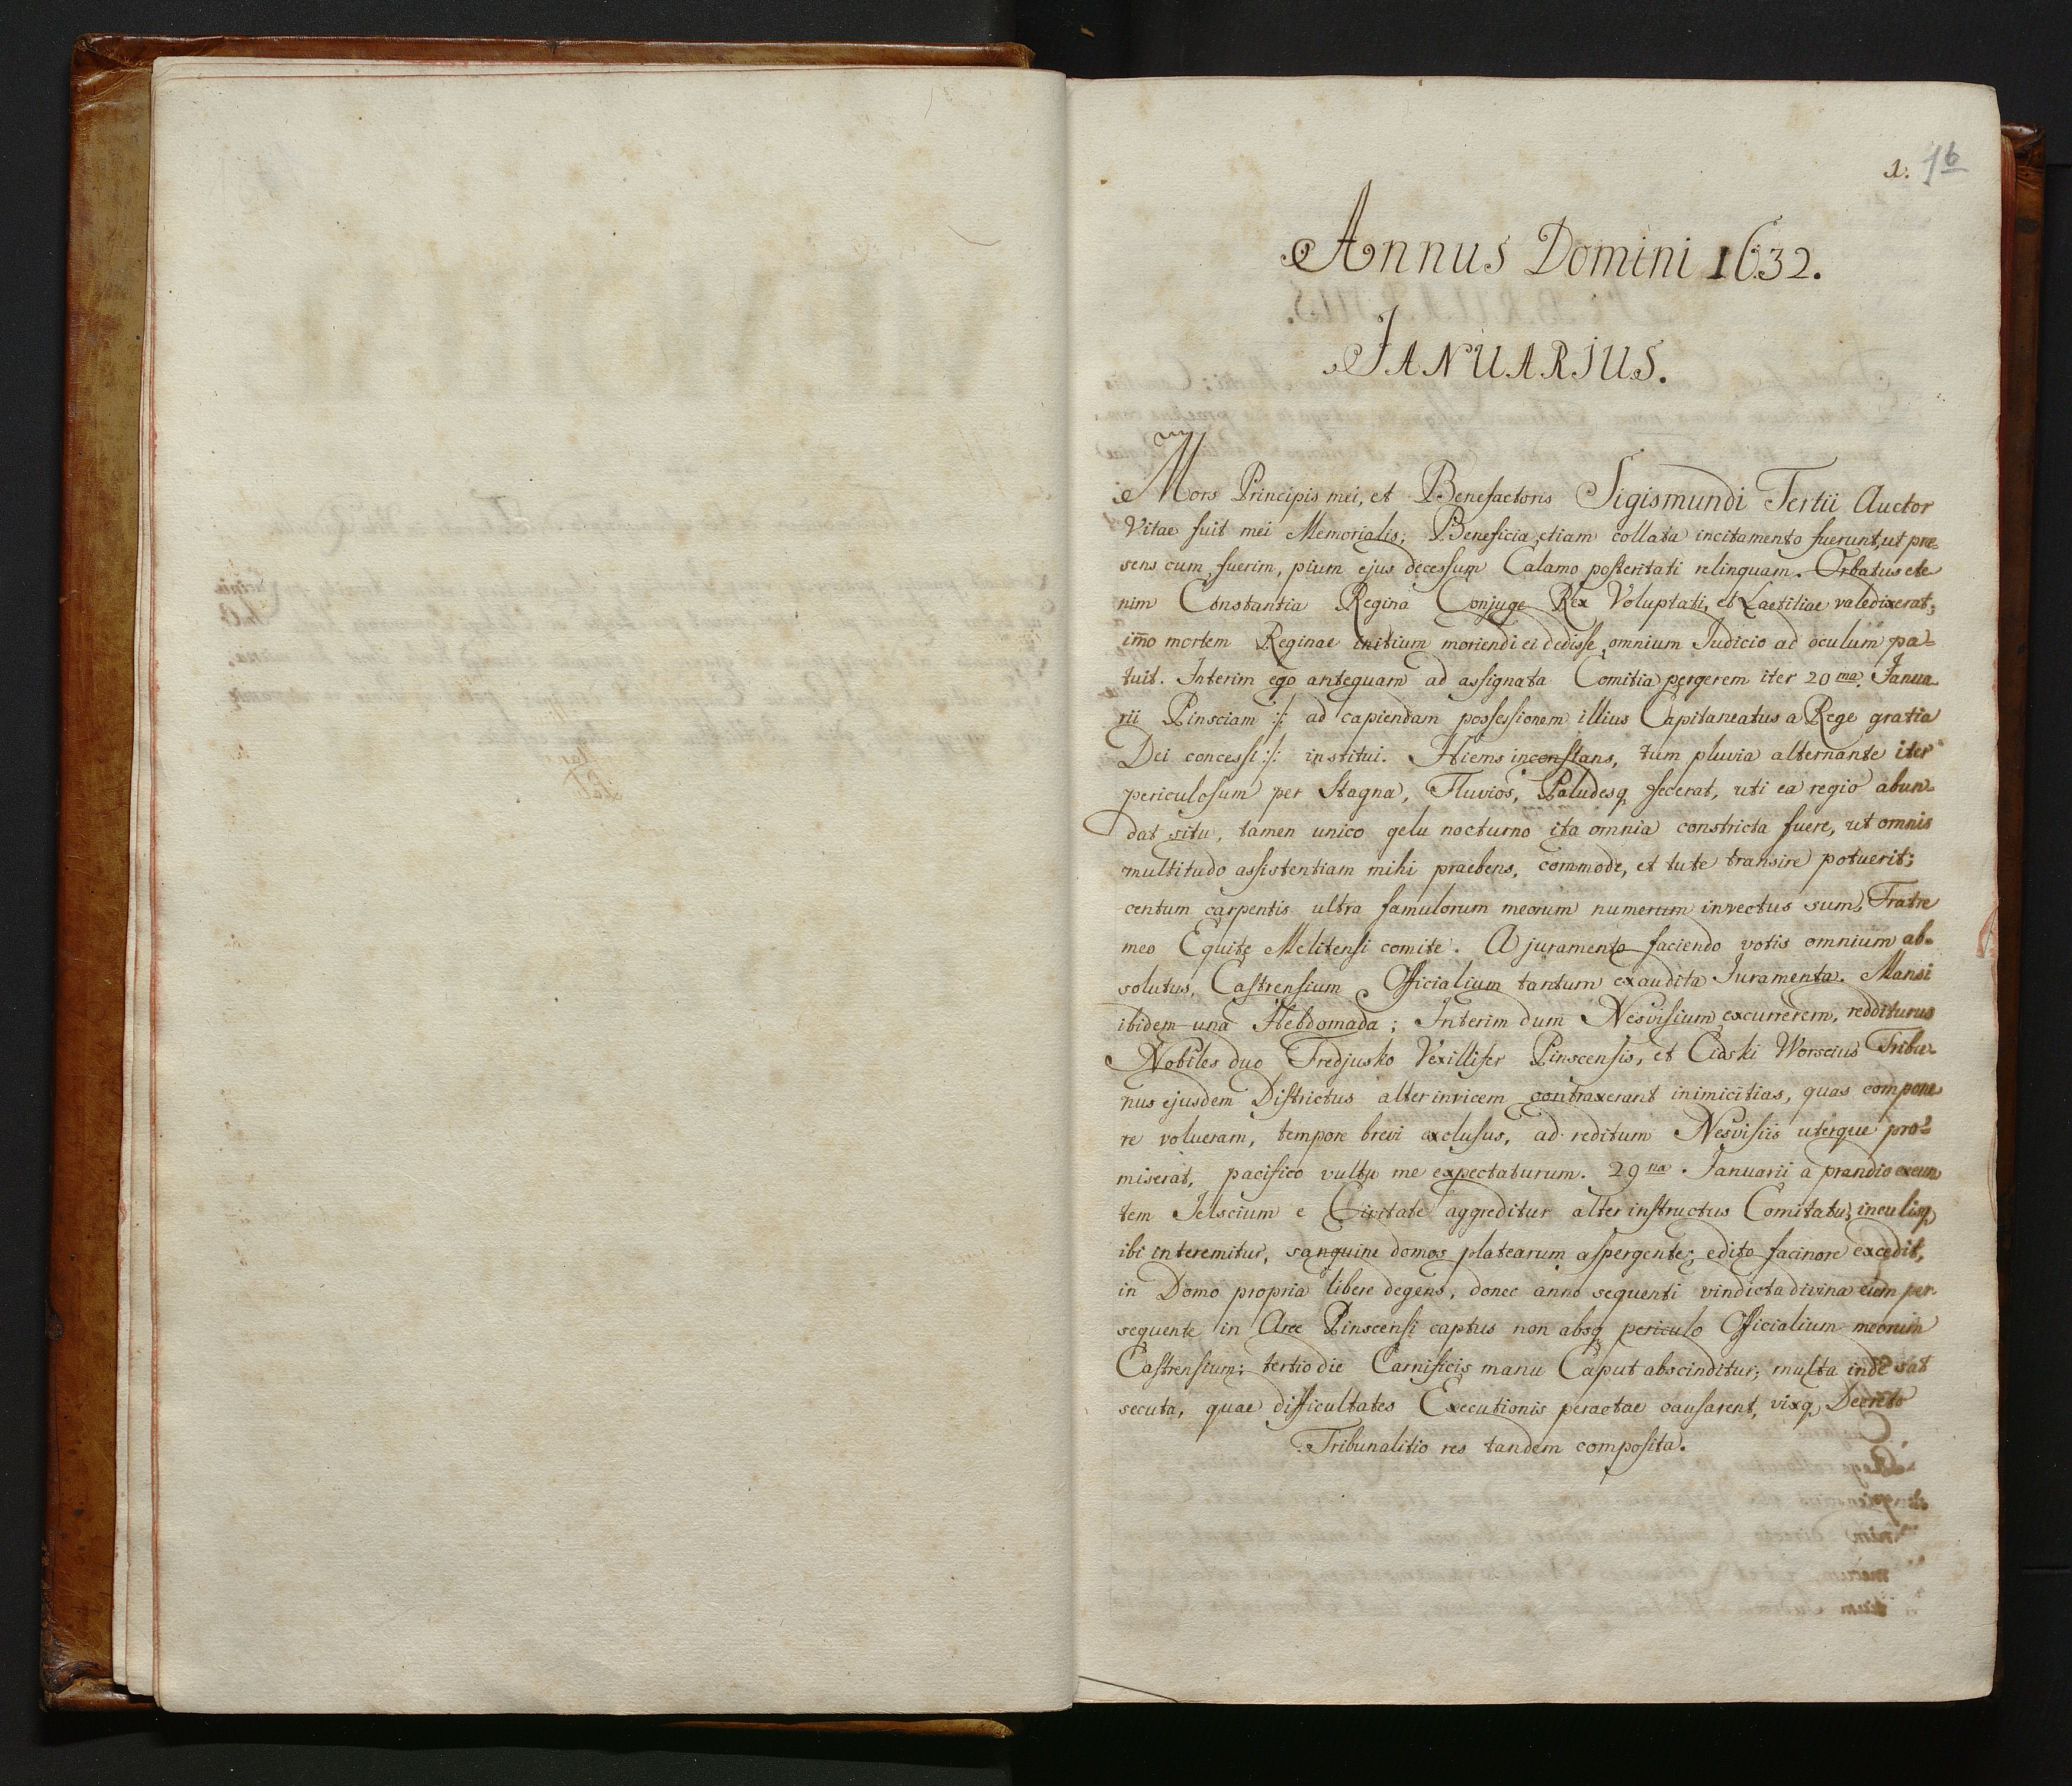 1. 16
Annus Domini 1632.
JANUARJUS.
Mors Principis mei, et Benefactoris Sigismundi Tertii Auctor
Vitae fuit mei Memorialis; Beneficia etiam collata incitamento fuerunt, ut prae-
sens cum fuerim, pium ejus decessum Calamo posteritati relinquam. Orbatus ete
nim Constantia Regina Conjuge Rex Voluptati, et Laetitiae valedixerat;
imo mortem Reginae initium moriendi ei dedisse omnium Iudicio ad oculum pa-
tuit. Interim ego antequam ad assignata Comitia pergerem iter 20 ma. Janua
rii Pinsciam :/: ad capiendam possessionem illius Capitaneatus a Rege gratia
Dei concessi :/: institui. Hiems inconstans, tum pluvia alternante iter
periculosum per Stagna, Fluvios, Paludesq fecerat, uti ea regio abun-
dat situ, tamen unico gelu nocturno ita omnia constricta fuere, ut omnis
multitudo assistentiam mihi praebens, commode, et tute transire potuerit;
centum carpentis ultra famulorum meorum numerum invectus sum, Fratre
meo Equite Melitensi comite. A juramento faciendo votis omnium ab-
solutus, Castrensium Officialium tantum exaudita Iuramenta. Mansi
ibidem una Hebdomada; Interim dum Nesvisium excurrerem, redditurus
Nobiles duo Fredjusko Vexillifer Pinscensis, et Cidski Worscius Tribu-
nus ejusdem Districtus alterinvicem contraxerant inimicitias, quas compone
re volueram, tempore brevi exclusus, ad reditum Nesvisiis uterque pro-
miserat, pacifico vultu me expectaturum. 29 na. Januarii a prandio exeun
tem Jelscium e Civitate aggreditur alter instructus Comitatu, inculisq
ibi interemitur, sanguine domos platearum aspergente; edito facinore excedit,
in Domo propria libere degens, donec anno sequenti vindicta divina eum per
sequente in Arce Pinscensi captus non absq periculo Officialium meorum
Castrensium; tertio die Carnificis manu Caput abscinditur; multa inde sat
secuta, quae difficultates Executionis peractae causarent, vixq Decreto
Tribunalitio res tandem composita.